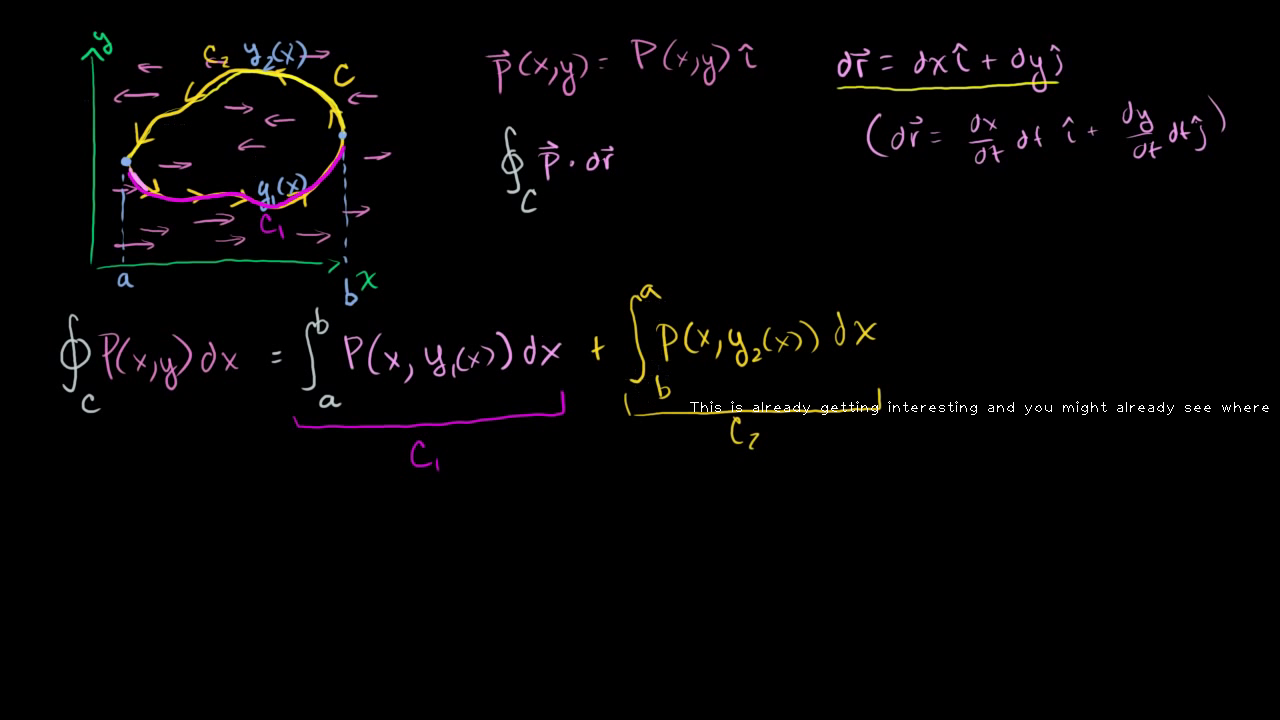 y
C₂ y₂(x) C
y₁(x)
C₁
a b x
p⃗(x,y) = P(x,y) î
dr⃗ = dx î + dy ĵ
(dr⃗ = dx/dt dt î + dy/dt dt ĵ)
∮_C p⃗ · dr⃗
∮_C P(x,y) dx = ∫_a^b P(x, y₁(x)) dx + ∫_b^a P(x, y₂(x)) dx
This is already getting interesting and you might already see where
C₁ C₂